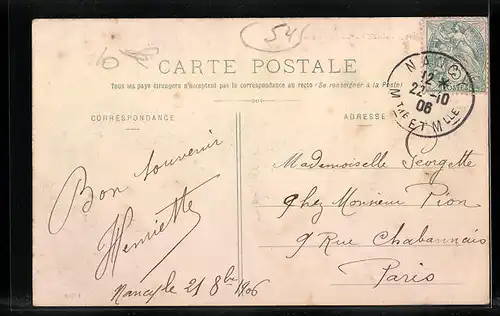 54
CARTE POSTALE
Tous les pays étrangers n'acceptent pas la correspondance au recto (Se renseigner à la Poste)
CORRESPONDANCE
ADRESSE
NANCY
12
22-10
06
MTHE ET MLLE
Bon souvenir
Henriette
Nancy le 21 8bre 1906
Mademoiselle Georgette
Chez Monsieur Pion
9 Rue Chabannais
Paris